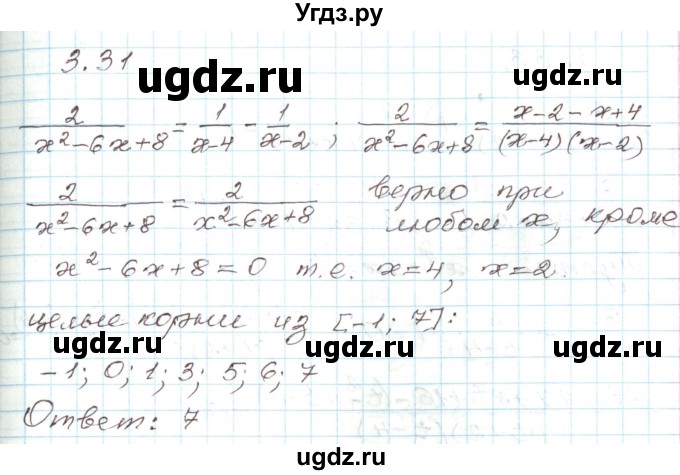 Угдз.ру
3.31
2/(x²-6x+8) = 1/(x-4) - 1/(x-2) ; 2/(x²-6x+8) = (x-2-x+4)/((x-4)(x-2))
2/(x²-6x+8) = 2/(x²-6x+8) верно при
любом x, кроме
x²-6x+8=0 т.е. x=4, x=2.
целые корни из [-1; 7]:
-1; 0; 1; 3; 5; 6; 7
Ответ: 7
ugdz.ru
ugdz.ru
ugdz.ru
ugdz.ru
ugdz.ru
ugdz.ru
ugdz.ru